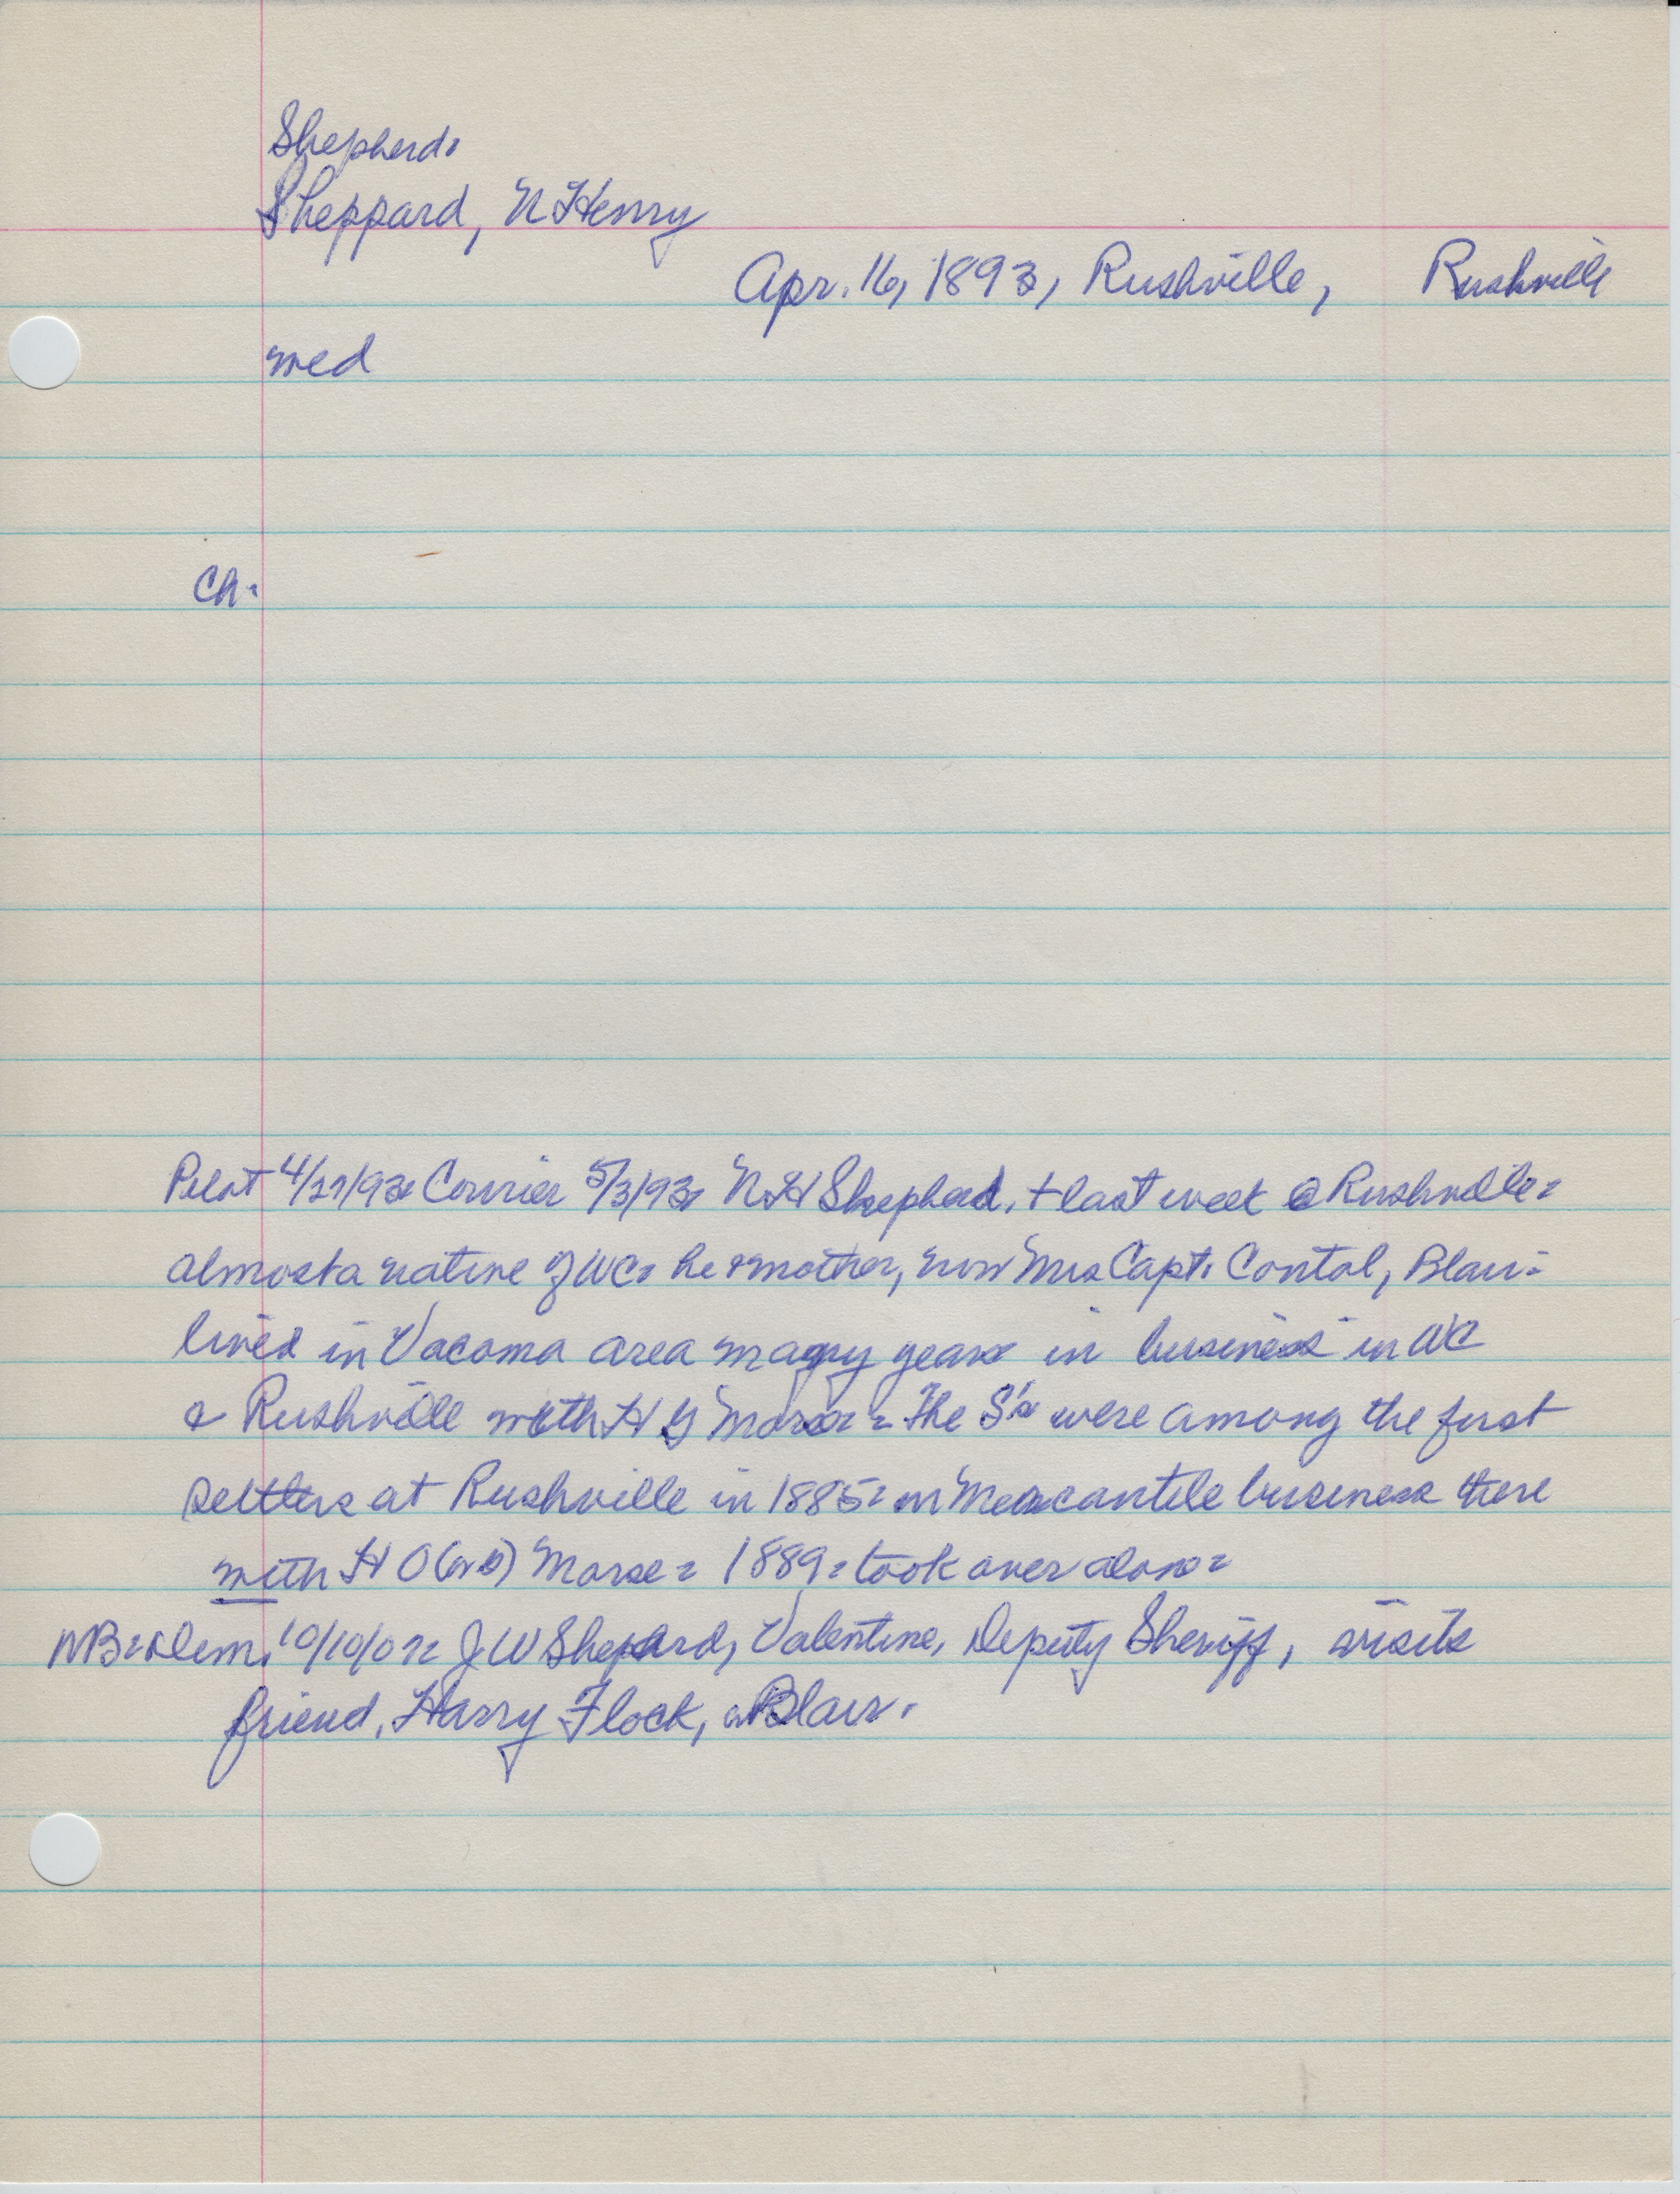 Shepherd.
Sheppard, N Henry
Apr. 16, 1893, Rushville, Rushville
med
Ch.
Pilot 4/27/93: Courier 5/3/93: N H Shepherd, + last week @ Rushville:
almost a native of WC: he & mother, now Mrs Capt. Contal, Blair:
lived in Vacoma area many years in business in WC
& Rushville with H G Morse: The S's were among the first
settlers at Rushville in 1885: in Mercantile business there
with H O (or G) Morse: 1889: took over alone:
NB: Dem. 10/10/07: J W Shepard, Valentine, Deputy Sheriff, visits
friend, Harry Flock, Blair.